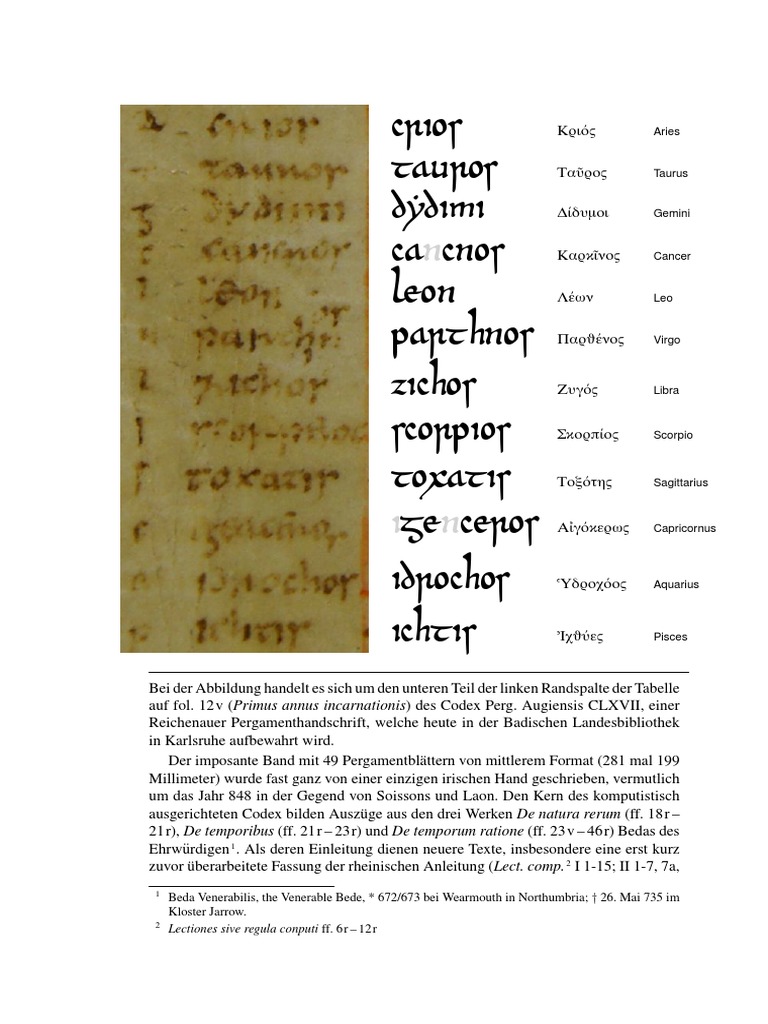 crior Κριός Aries
tauros Ταῦρος Taurus
dÿdimi Δίδυμοι Gemini
cancnos Καρκῖνος Cancer
leon Λέων Leo
parthnos Παρθένος Virgo
zichos Ζυγός Libra
scorpios Σκορπίος Scorpio
toxatis Τοξότης Sagittarius
igenceros Αἰγόκερως Capricornus
idrochos Ὑδροχόος Aquarius
ichtis Ἰχθύες Pisces
Bei der Abbildung handelt es sich um den unteren Teil der linken Randspalte der Tabelle
auf fol. 12v (Primus annus incarnationis) des Codex Perg. Augiensis CLXVII, einer
Reichenauer Pergamenthandschrift, welche heute in der Badischen Landesbibliothek
in Karlsruhe aufbewahrt wird.
Der imposante Band mit 49 Pergamentblättern von mittlerem Format (281 mal 199
Millimeter) wurde fast ganz von einer einzigen irischen Hand geschrieben, vermutlich
um das Jahr 848 in der Gegend von Soissons und Laon. Den Kern des komputistisch
ausgerichteten Codex bilden Auszüge aus den drei Werken De natura rerum (ff. 18r–
21r), De temporibus (ff. 21r–23r) und De temporum ratione (ff. 23v–46r) Bedas des
Ehrwürdigen¹. Als deren Einleitung dienen neuere Texte, insbesondere eine erst kurz
zuvor überarbeitete Fassung der rheinischen Anleitung (Lect. comp.² I 1-15; II 1-7, 7a,
¹ Beda Venerabilis, the Venerable Bede, * 672/673 bei Wearmouth in Northumbria; † 26. Mai 735 im
Kloster Jarrow.
² Lectiones sive regula conputi ff. 6r–12r